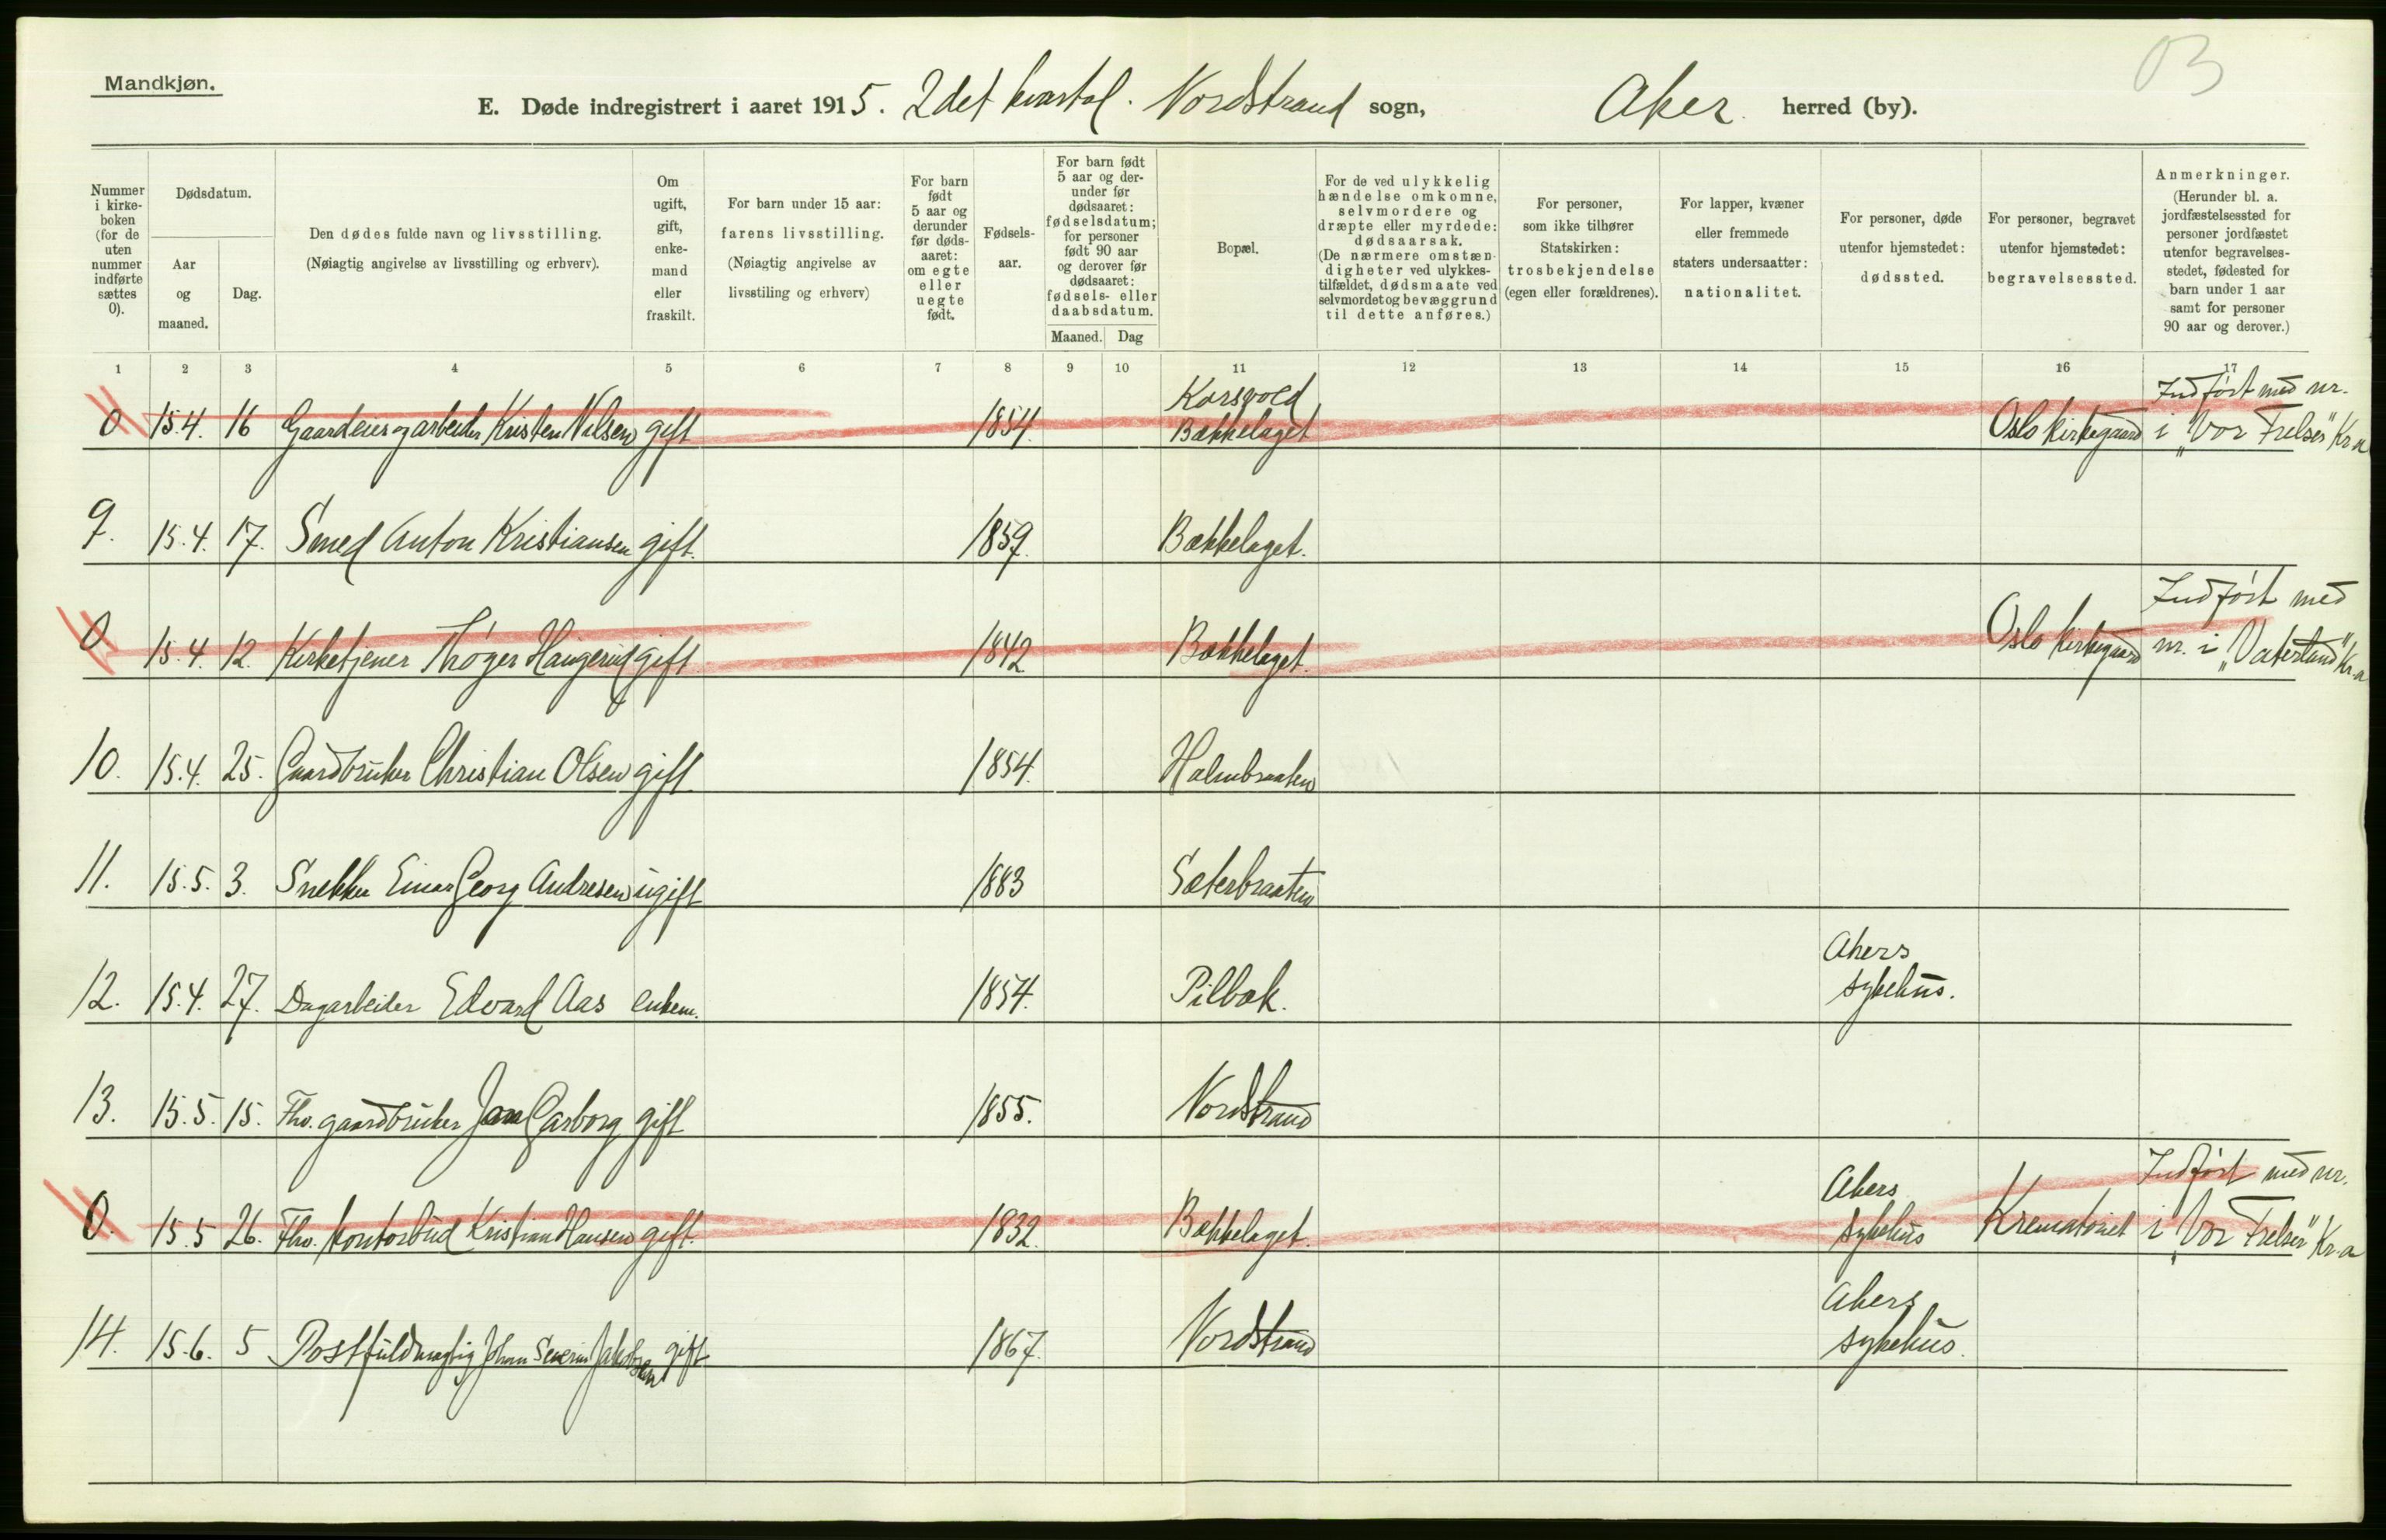 Mandkjøn.
E. Døde indregistrert i aaret 1915. 2det kvartal. Nordstrand sogn, Aker herred (by).
Nummer i kirke-boken (for de uten nummer indførte sættes 0).
Dødsdatum.
Aar og maaned.
Dag.
Den dødes fulde navn og livsstilling.
(Nøiagtig angivelse av livsstilling og erhverv).
Om ugift, gift, enke-mand eller fraskilt.
For barn under 15 aar:
farens livsstilling.
(Nøiagtig angivelse av livsstiling og erhverv)
For barn født 5 aar og derunder før døds-aaret: om egte eller uegte født.
Fødsels-aar.
For barn født 5 aar og der-under før dødsaaret: fødselsdatum; for personer født 90 aar og derover før dødsaaret: fødsels- eller daabsdatum.
Maaned. Dag
Bopæl.
For de ved ulykkelig hændelse omkomne, selvmordere og dræpte eller myrdede: dødsaarsak.
(De nærmere omstæn-digheter ved ulykkes-tilfældet, dødsmaate ved selvmordet og bevæggrund til dette anføres.)
For personer, som ikke tilhører Statskirken: trosbekjendelse (egen eller forældrenes).
For lapper, kvæner eller fremmede staters undersaatter: nationalitet.
For personer, døde utenfor hjemstedet: dødssted.
For personer, begravet utenfor hjemstedet: begravelsessted.
Anmerkninger.
(Herunder bl. a. jordfæstelsessted for personer jordfæstet utenfor begravelses-stedet, fødested for barn under 1 aar samt for personer 90 aar og derover.)
1 2 3 4 5 6 7 8 9 10 11 12 13 14 15 16 17
0 15.4. 16 Gaardeier og arbeider Kristen Nilsen gift 1854. Korsvold Bækkelaget Oslo kirkegaard Indført med nr. i "Vor Frelser" Kr.a
9. 15.4. 17. Smed Anton Kristiansen gift. 1859. Bækkelaget.
0 15.4. 12. Kirketjener Thøger Haugerud gift 1842 Bækkelaget. Oslo kirkegaard Indført med nr. i "Vaterland" Kr.a
10. 15.4. 25. Gaardbruker Christian Olsen gift 1854. Holmbraaten
11. 15.5. 3. Snekker Einar Georg Andresen ugift 1883 Sæterbraaten
12. 15.4. 27. Dagarbeider Edvard Aas enkem. 1854. Pilbæk. Akers sykehus.
13. 15.5. 15. Fhv. gaardbruker Jon Garborg gift 1855. Nordstrand
0. 15.5 26. Fhv. kontorbud Kristian Hansen gift. 1832. Bækkelaget. Akers sykehus Krematoriet Indført med nr. i "Vor Frelser" Kr.a
14. 15.6. 5 Postfuldmægtig Johan Severin Jakobsen gift 1867. Nordstrand Akers sykehus.